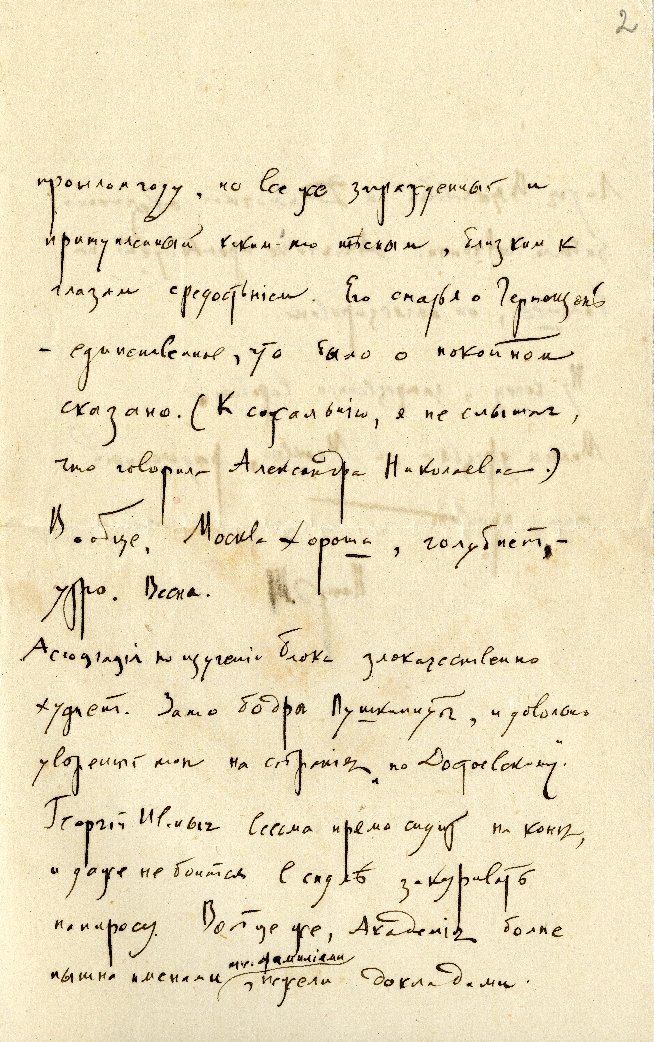 2
прошлом году, но все же заражденный и
притупленный каким-то тѣсным, близким к
глазам средостѣнием. Его статья о Гершензонѣ
- единственное, что было о покойном
сказано. (К сожалѣнію, я не слышал,
что говорила Александра Николаевна.)
Вообще, Москва хороша, голубиет,-
утро. Весна.
Ассоціація по изученію Блока злокачественно
худѣет. Зато бодры Пушкинисты, и довольно
уверенный топ на собраніях "по Достоевскому".
Георгій Иваныч весьма прямо сидит на конѣ,
и даже не боится в сѣдлѣ закуривать
папиросу. Вообще же, Академія более
пышна именами, нежели докладами.
т.е. фамиліями